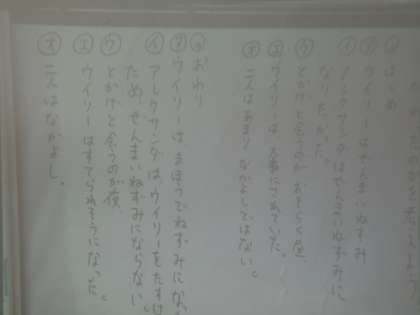 はじめ
㋐ウイリーはぜんまいねずみ
㋑アレクサンダはぜんまいねずみに
なりたかった。
㋒とかげと会うのがおそらく昼
㋓ウイリーは、大事にされていた。
㋔二人はあまりなかよしではない。
おわり
㋐ウイリーは、まほうでねずみに
㋑アレクサンダはウイリーをたすけ
ため、ぜんまいねずみにならない。
㋒とかげと会うのが夜
㋓ウイリーはすてられそうになった。
㋔二人はなかよし。